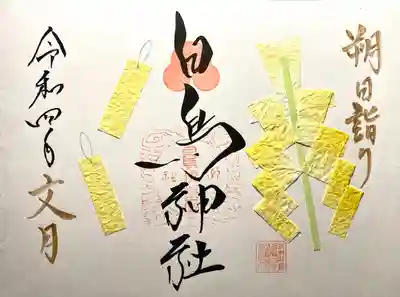 朔日詣り
白鳥神社
令和四年
文月